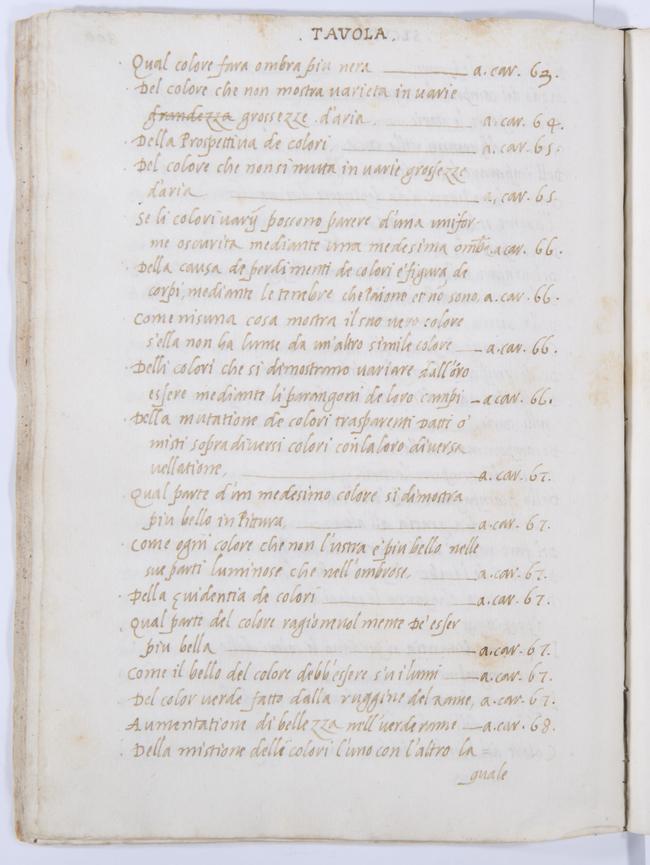 . TAVOLA .
Qual colore fara ombra piu nera ——— a.car. 63.
Del colore che non mostra varieta in varie
grandezza grossezze d'aria ——— a.car. 64.
Della Prospettiva de colori ——— a.car. 65.
Del colore che non si muta in varie grossezze
d'aria ——— a.car. 65.
Se li colori varÿ possono parere d'una unifor-
me oscurita mediante una medesima omb̃. a.car. 66.
Della causa de perdimenti de colori e figura de
corpi, mediante le tenebre che paiono et nõ sono, a.car. 66.
Come nisuna cosa mostra il suo vero colore
s'ella non ha lume da un'altro simile colore — a.car. 66.
Delli colori che si dimostrano variare dall'õro
essere mediante li paragoni de loro campi — a.car. 66.
Della mutatione de colori trasparenti datti o'
misti sopra diversi colori con la loro diversa
vellatione, ——— a.car. 67.
Qual parte d'un medesimo colore si dimostra
piu bello in Pittura, ——— a.car. 67.
Come ogni colore che non lustra è piu bello nelle
sue parti luminose che nell'ombrose, ——— a.car. 67.
Della evidentia de colori ——— a.car. 67.
Qual parte del colore ragionevolmente de' esser
piu bella ——— a.car. 67.
Come il bello del colore debb'essere su i lumi — a.car. 67.
Del color verde fatto dalla ruggine del rame, a.car. 67.
Aumentatione di bellezza nell'verderame — a.car. 68.
Della mistione delli colori l'uno con l'altro la
quale